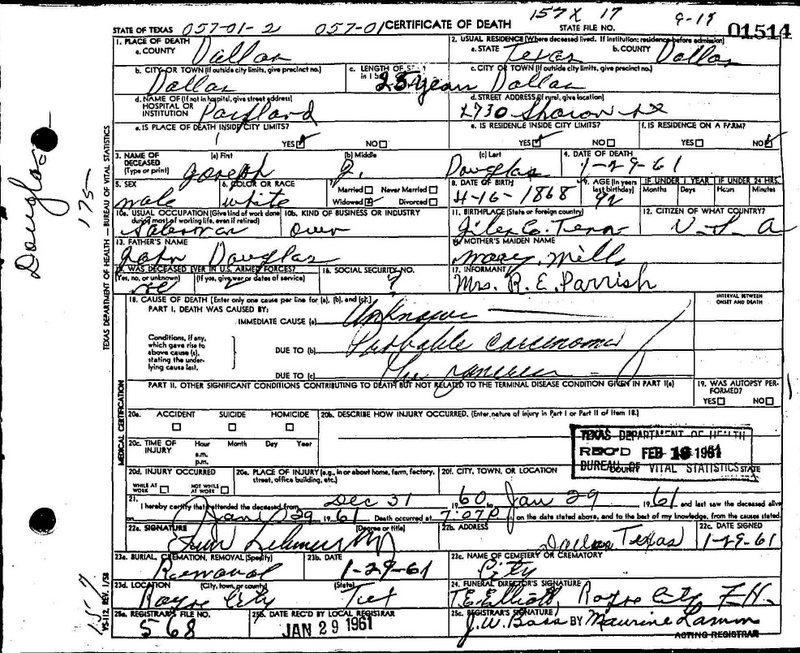 157X 17 9-19
STATE OF TEXAS 057-01-2 057-01 CERTIFICATE OF DEATH STATE FILE NO. 01514
1. PLACE OF DEATH
a. COUNTY Dallas
2. USUAL RESIDENCE (Where deceased lived. If institution: residence before admission)
a. STATE Texas b. COUNTY Dallas
b. CITY OR TOWN (If outside city limits, give precinct no.) Dallas
c. LENGTH OF STAY in 1b 25 years
c. CITY OR TOWN (If outside city limits, give precinct no.) Dallas
d. NAME OF (If not in hospital, give street address) HOSPITAL OR INSTITUTION
d. STREET ADDRESS (If rural, give location) 2730 Sharon
e. IS PLACE OF DEATH INSIDE CITY LIMITS? YES NO
e. IS RESIDENCE INSIDE CITY LIMITS? YES NO
f. IS RESIDENCE ON A FARM? YES NO
3. NAME OF DECEASED (Type or print) (a) First Joseph (b) Middle J. (c) Last Douglas
4. DATE OF DEATH 1-29-61
5. SEX male
6. COLOR OR RACE white
7. Married Never Married Widowed Divorced
8. DATE OF BIRTH 4-16-1868
9. AGE (In years last birthday) 92
IF UNDER 1 YEAR Months Days
IF UNDER 24 HRS. Hours Minutes
10a. USUAL OCCUPATION (Give kind of work done during most of working life, even if retired) Salesman
10b. KIND OF BUSINESS OR INDUSTRY own
11. BIRTHPLACE (State or foreign country) Giles Co. Tenn
12. CITIZEN OF WHAT COUNTRY? U.S.A
13. FATHER'S NAME John Douglas
14. MOTHER'S MAIDEN NAME Mary Mills
15. WAS DECEASED EVER IN U.S. ARMED FORCES? (Yes, no, or unknown) (If yes, give war or dates of service) no
16. SOCIAL SECURITY NO. ?
17. INFORMANT Mrs. R. E. Parrish
18. CAUSE OF DEATH (Enter only one cause per line for (a), (b), and (c).)
INTERVAL BETWEEN ONSET AND DEATH
PART I. DEATH WAS CAUSED BY:
IMMEDIATE CAUSE (a) Unknown
Conditions, if any, which gave rise to above cause (a), stating the underlying cause last.
DUE TO (b) Probable carcinoma
DUE TO (c) pancreas
PART II. OTHER SIGNIFICANT CONDITIONS CONTRIBUTING TO DEATH BUT NOT RELATED TO THE TERMINAL DISEASE CONDITION GIVEN IN PART I(a)
19. WAS AUTOPSY PERFORMED? YES NO
20a. ACCIDENT SUICIDE HOMICIDE
20b. DESCRIBE HOW INJURY OCCURRED. (Enter nature of injury in Part I or Part II of item 18.)
20c. TIME OF INJURY Hour a.m. p.m. Month Day Year
TEXAS DEPARTMENT OF HEALTH
REC'D FEB 1961
BUREAU OF VITAL STATISTICS
20d. INJURY OCCURRED WHILE AT WORK NOT WHILE AT WORK
20e. PLACE OF INJURY (e.g., in or about home, farm, factory, street, office building, etc.)
20f. CITY, TOWN, OR LOCATION COUNTY STATE
21. I hereby certify that I attended the deceased from Dec 31 1960 Jan 29 1961 and last saw the deceased alive
Jan 29 1961 Death occurred at on the date stated above, and to the best of my knowledge, from the causes stated.
22a. SIGNATURE (Degree or title)
22b. ADDRESS Dallas Texas
22c. DATE SIGNED 1-29-61
23a. BURIAL, CREMATION, REMOVAL (Specify) Removal
23b. DATE 1-29-61
23c. NAME OF CEMETERY OR CREMATORY City
23d. LOCATION (City, town, or county) (State) Royse City Tex
24. FUNERAL DIRECTOR'S SIGNATURE T.E. Elliott, Royse City F.H.
25a. REGISTRAR'S FILE NO. 568
25b. DATE REC'D BY LOCAL REGISTRAR JAN 29 1961
25c. REGISTRAR'S SIGNATURE J.W. Bass BY Maurine Lamm
ACTING REGISTRAR
Douglas
175-
TEXAS DEPARTMENT OF HEALTH — BUREAU OF VITAL STATISTICS
MEDICAL CERTIFICATION
VS-112 REV. 1/58